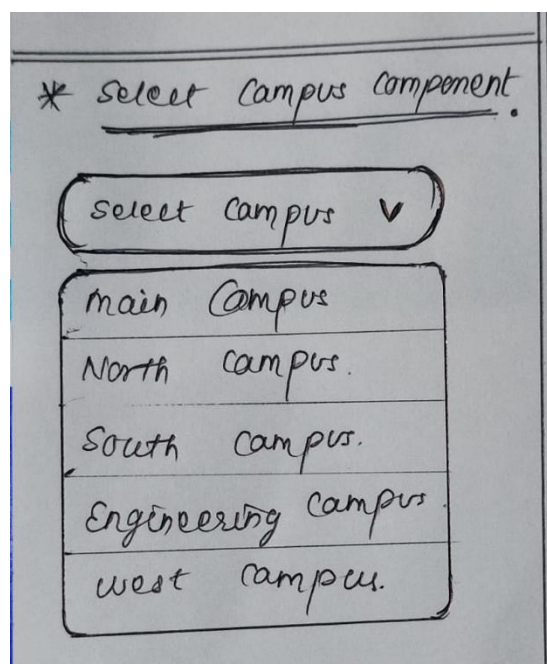 * Select Campus Component.
Select Campus
Main Campus
North campus.
South campus.
Engineering Campus
west campus.